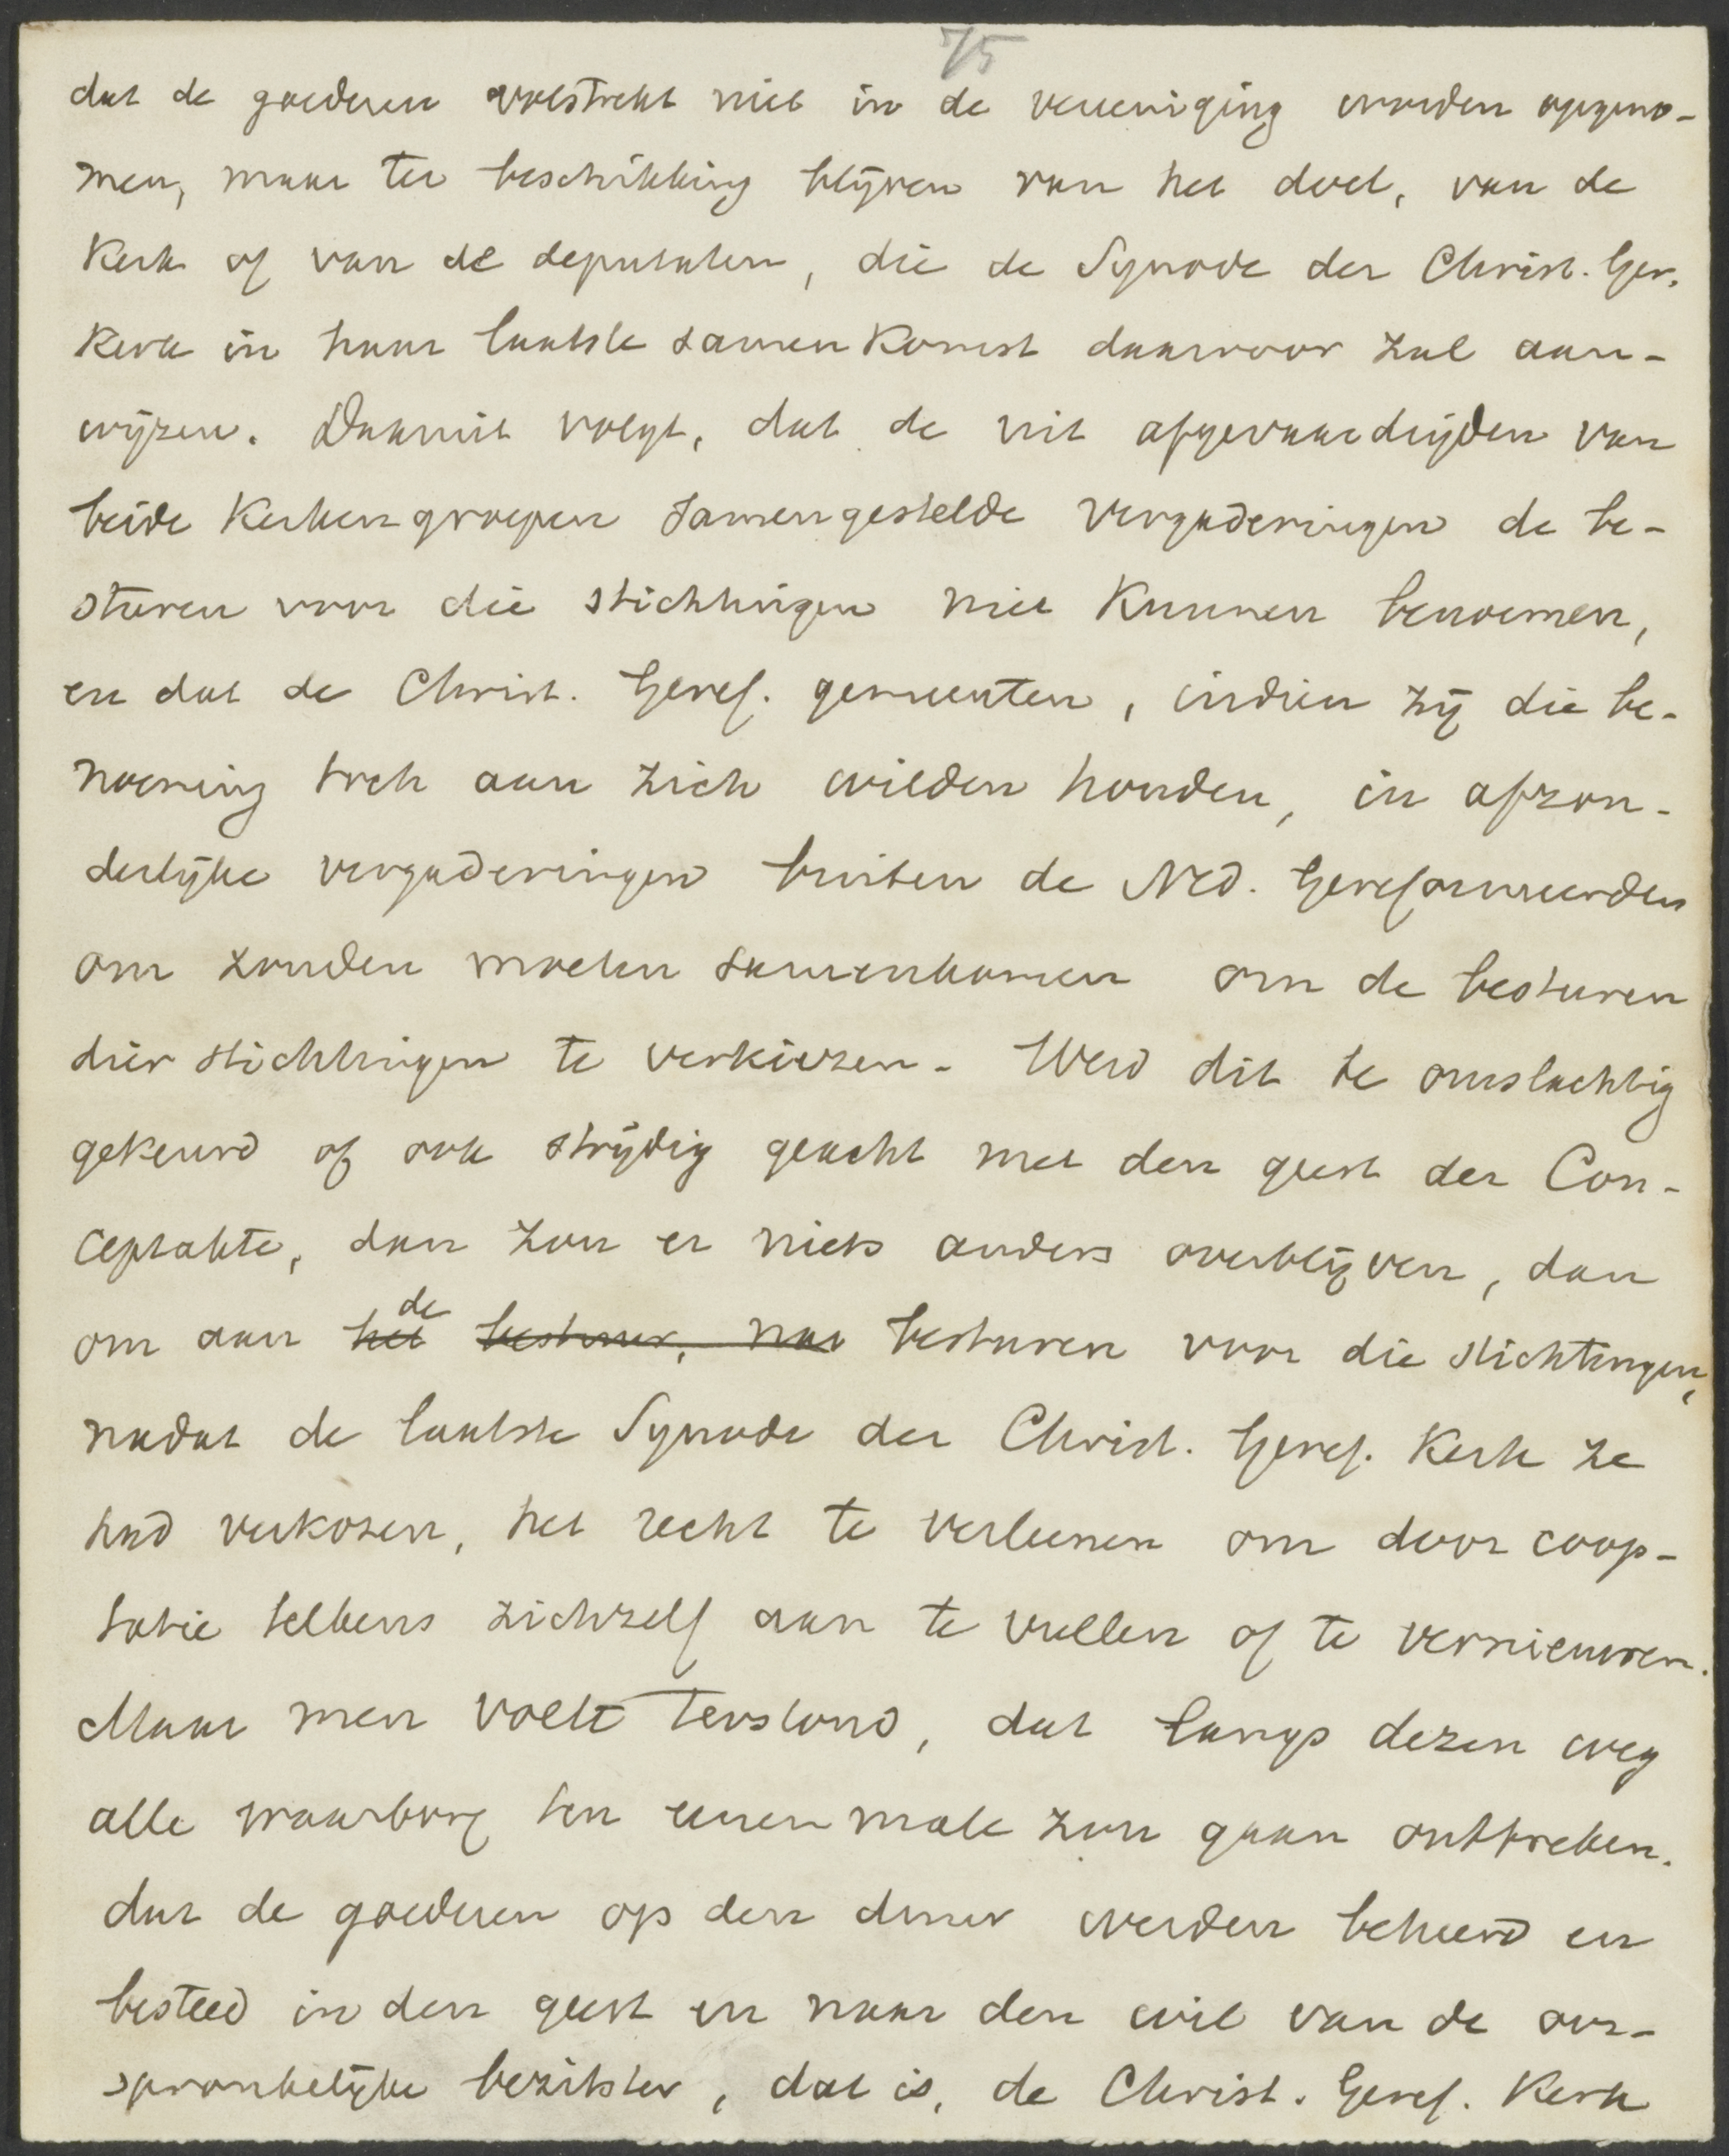 75
dat de goederen volstrekt niet in de vereeniging worden opgeno-
men, maar ter beschikking blijven van het doel, van de
Kerk of van de deputaten, die de Synode der Christ. Ger.
Kerk in haar laatste samenkomst daarvoor zal aan-
wijzen. Daaruit volgt, dat de uit afgevaardigden van
beide Kerkengroepen samengestelde vergaderingen de be-
sturen voor die stichtingen niet kunnen benoemen,
en dat de Christ. Geref. gemeenten, indien zij die be-
noeming toch aan zich wilden houden, in afzon-
derlijke vergaderingen buiten de Ned. Gereformeerden
om zouden moeten samenkomen om de besturen
dier stichtingen te verkiezen. Werd dit te omslachtig
gekeurd of ook strijdig geacht met den geest der Con-
ceptakte, dan zou er niets anders overblijven, dan
om aan het de bestuur, na besturen voor die stichtingen,
nadat de laatste Synode der Christ. Geref. Kerk ze
had verkozen, het recht te verleenen om door coop-
tatie telkens zichzelf aan te vullen of te vernieuwen.
Maar men voelt terstond, dat langs dezen weg
alle waarborg ten eenen male zou gaan ontbreken.
dat de goederen op den duur werden beheerd en
besteed in den geest en naar den wil van de oor-
spronkelijke bezitster, dat is, de Christ. Geref. Kerk